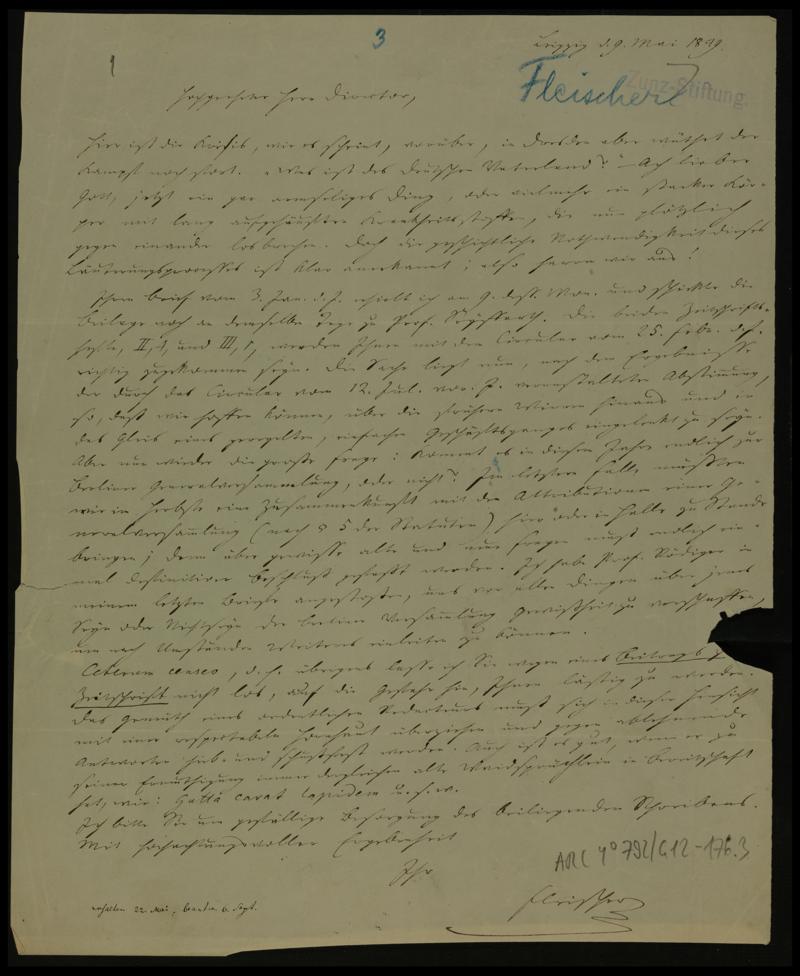 3
1
Leipzig d. 9. Mai 1849.
Fleischer
Zunz-Stiftung.
Hochgeehrter Herr Director,
Hier ist die Krisis, wie es scheint, vorüber, in Dresden aber wüthet der
Kampf noch fort. „Was ist des Deutschen Vaterland?“ – Ach lieber
Gott, jetzt ein gar armseliges Ding, oder vielmehr ein starker Kör-
per mit lang aufgehäuften Krankheitsstoffen, die nun plötzlich
gegen einander losbrechen. Doch die geschichtliche Nothwendigkeit dieses
Läuterungsprocesses ist klar anerkannt; also harren wir aus!
Ihren Brief vom 3. Jan. d. J. erhielt ich am 9. dess. Mon. und schickte die
Beilage noch an demselben Tage zu Prof. Seyffarth. Die beiden Zeitschrifts-
hefte, II, 4, und III, 1, werden Ihnen mit dem Circular vom 25. Febr. d. J.
richtig zugekommen seyn. Die Sache liegt nun, nach dem Ergebnisse
der durch das Circular vom 12. Jul. vor. J. veranstalteten Abstimmung,
so, dass wir hoffen können, über die frühern Wirren hinaus und in
das Gleis eines geregelten, einfachen Geschäftsganges eingelenkt zu seyn.
Aber nun wieder die grosse Frage: kommt es in diesem Jahre endlich zur
Berliner Generalversammlung, oder nicht? Im letztern Falle müssten
wir im Herbste eine Zusammenkunft mit den Attributionen einer Ge-
neralversammlung (nach § 5 der Statuten) hier oder in Halle zu Stande
bringen; denn über gewisse alte und neue Fragen muss endlich ein-
mal definitiver Beschluss gefasst werden. Ich habe Prof. Rödiger in
meinem letzten Briefe angestossen, uns vor allen Dingen über jenes
Seyn oder Nichtseyn der Berliner Versammlung Gewissheit zu verschaffen,
um nach Umständen Weiteres einleiten zu können.
Ceterum censeo, d. h. übrigens lasse ich Sie wegen eines Beitrags z
Zeitschrift nicht los, auf die Gefahr hin, Ihnen lästig zu werden.
Das Gemüth eines ordentlichen Redacteurs muss sich in dieser Hinsicht
mit einer respectabeln Hornhaut überziehen und gegen ablehnende
Antworten hieb- und schussfest werden. Auch ist es gut, wenn er zu
seiner Ermuthigung immer dergleichen alte Waidsprüchlein in Bereitschaft
hat, wie: Gutta cavat lapidem u. s. w.
Ich bitte Sie um gefällige Besorgung des beiliegenden Schreibens.
Mit hochachtungsvoller Ergebenheit
Ihr
Fleischer
ARC 4° 792/G12-176.3
erhalten 22. Mai; beantw. 6. Sept.